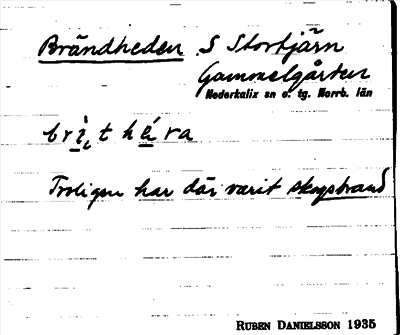 Brändheden S Stortjärn
Gammelgården
Nederkalix sn o. tg. Norrb. län
Troligen har där varit skogsbrand
RUBEN DANIELSSON 1935